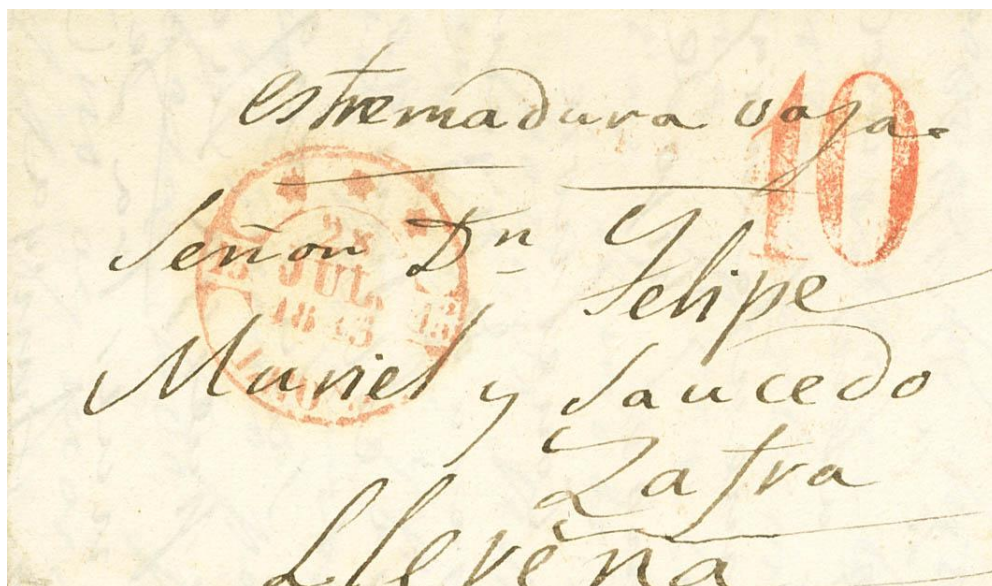 estremadura vaja.
10
Señor Dn Felipe
JUL.
Muriel y Saucedo
Zafra
Llerena